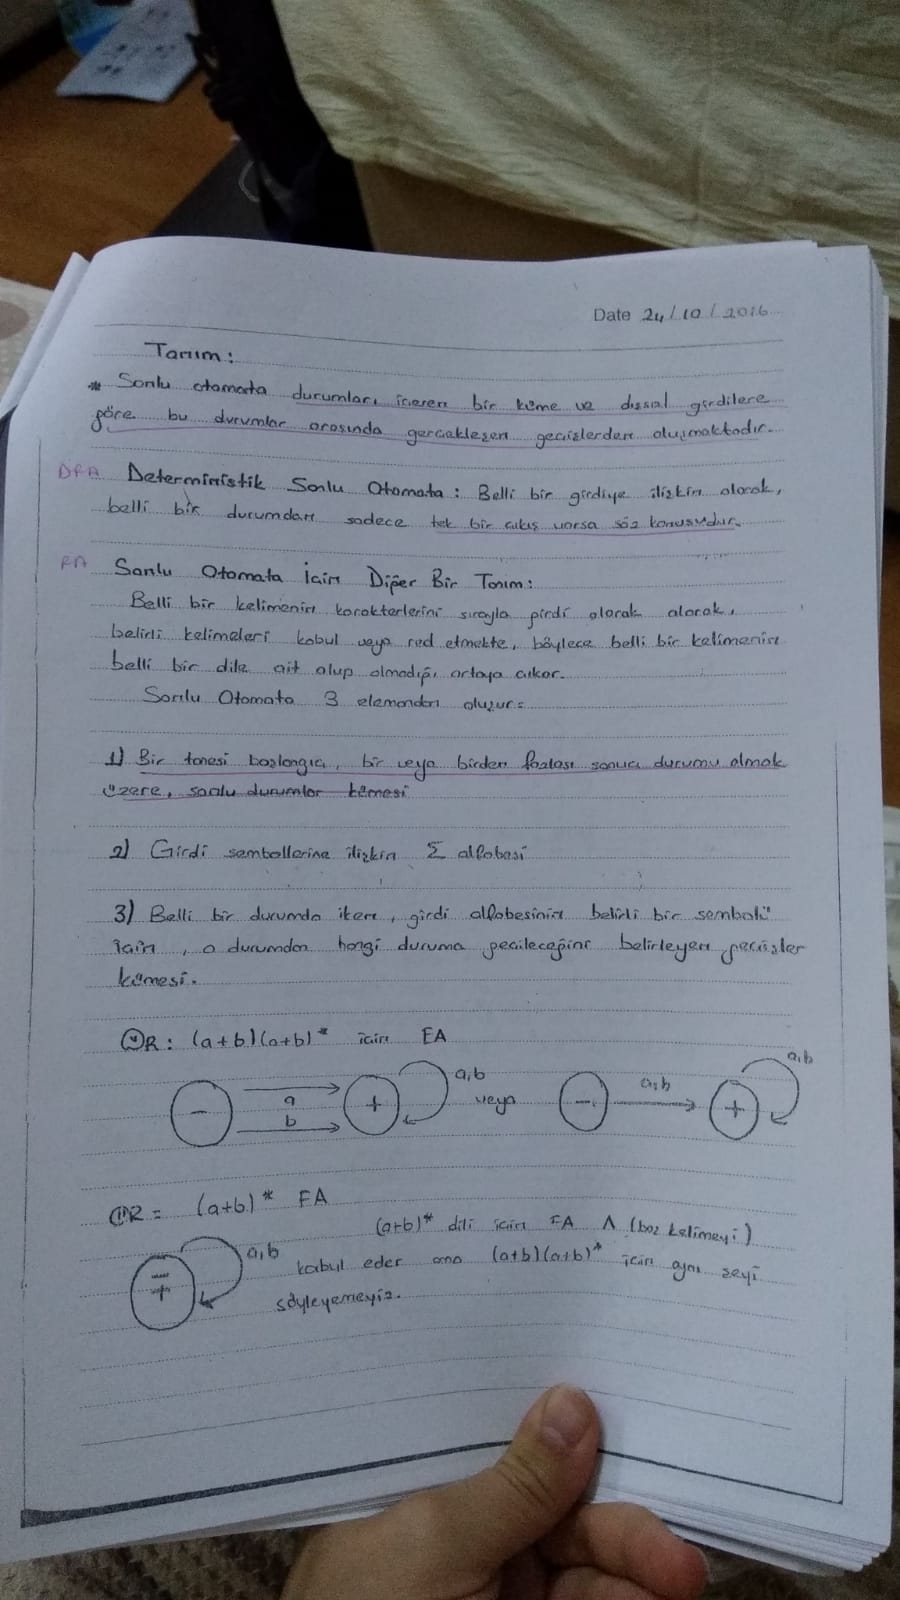 Date 24/10/2016
Tanım:
* Sonlu otomata durumları içeren bir küme ve dışsal girdilere
göre bu durumlar arasında gerçekleşen geçişlerden oluşmaktadır.
DFA Deterministik Sonlu Otomata: Belli bir girdiye ilişkin olarak,
belli bir durumdan sadece tek bir çıkış varsa söz konusudur.
FA Sonlu Otomata İçin Diğer Bir Tanım:
Belli bir kelimenin karakterlerini sırayla girdi olarak alarak,
belirli kelimeleri kabul veya red etmekte, böylece belli bir kelimenin
belli bir dile ait olup olmadığı ortaya çıkar.
Sonlu Otomata 3 elemandan oluşur:
1) Bir tanesi başlangıç, bir veya birden fazlası sonuç durumu olmak
üzere, sonlu durumlar kümesi
2) Girdi sembollerine ilişkin Σ alfabesi
3) Belli bir durumda iken, girdi alfabesinin belirli bir sembolü
için, o durumdan hangi duruma geçileceğini belirleyen geçişler
kümesi.
R: (a+b)(a+b)* için FA
- a b + a,b veya - a,b + a,b
R = (a+b)* FA
(a+b)* dili için FA Λ (boş kelimeyi)
- + a,b kabul eder ama (a+b)(a+b)* için aynı şeyi
söyleyemeyiz.